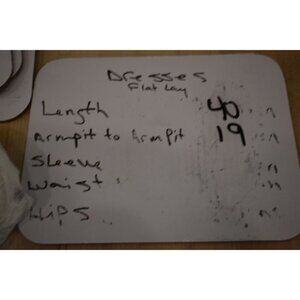 Dresses
Flat Lay
Length 40 in
Armpit to Armpit 19
Sleeve in
Waist in
Hips in